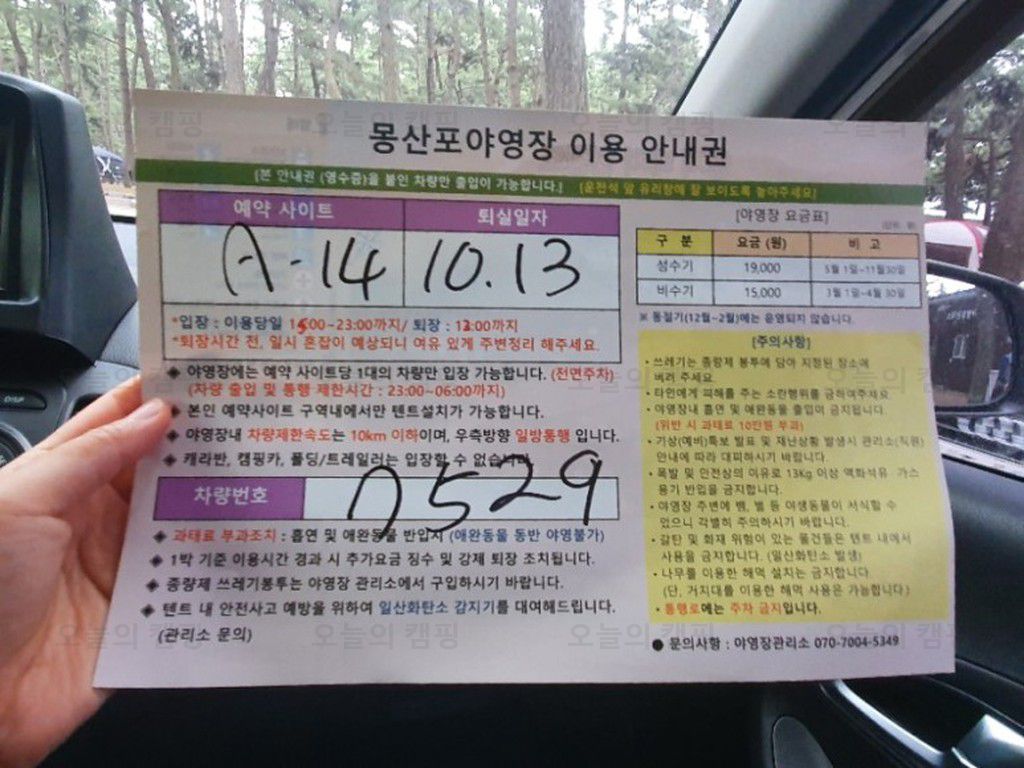 몽산포야영장 이용 안내권
[본 안내권 (영수증)을 붙인 차량만 출입이 가능합니다.] [운전석 앞 유리창에 잘 보이도록 놓아주세요]
예약 사이트 퇴실일자
A-14 10.13
*입장 : 이용당일 15:00~23:00까지/ 퇴장 : 12:00까지
*퇴장시간 전, 일시 혼잡이 예상되니 여유 있게 주변정리 해주세요.
◈ 야영장에는 예약 사이트당 1대의 차량만 입장 가능합니다. (전면주차)
(차량 출입 및 통행 제한시간 : 23:00~06:00까지)
◈ 본인 예약사이트 구역내에서만 텐트설치가 가능합니다.
◈ 야영장내 차량제한속도는 10km 이하이며, 우측방향 일방통행 입니다.
◈ 캐라반, 캠핑카, 폴딩/트레일러는 입장할 수 없습니다
차량번호 7529
◈ 과태료 부과조치 : 흡연 및 애완동물 반입시 (애완동물 동반 야영불가)
◈ 1박 기준 이용시간 경과 시 추가요금 징수 및 강제 퇴장 조치됩니다.
◈ 종량제 쓰레기봉투는 야영장 관리소에서 구입하시기 바랍니다.
◈ 텐트 내 안전사고 예방을 위하여 일산화탄소 감지기를 대여해드립니다.
(관리소 문의)
[야영장 요금표]
구 분 요금 (원) 비 고
성수기 19,000 5월 1일~11월 30일
비수기 15,000 3월 1일~4월 30일
※ 동절기(12월~2월)에는 운영되지 않습니다.
[주의사항]
• 쓰레기는 종량제 봉투에 담아 지정된 장소에
버려 주세요.
• 타인에게 피해를 주는 소란행위를 금하여주세요.
• 야영장내 흡연 및 애완동물 출입이 금지됩니다.
(위반 시 과태료 10만원 부과)
• 기상(예비)특보 발표 및 재난상황 발생시 관리소(직원)
안내에 따라 대피하시기 바랍니다.
• 폭발 및 안전상의 이유로 13Kg 이상 액화석유 가스
용기 반입을 금지합니다.
• 야영장 주변에 뱀, 벌 등 야생동물이 서식할 수
있으니 각별히 주의하시기 바랍니다.
• 갈탄 및 화재 위험이 있는 물건들은 텐트 내에서
사용을 금지합니다. (일산화탄소 발생)
• 나무를 이용한 해먹 설치는 금지합니다.
(단, 거치대를 이용한 해먹 사용은 가능합니다)
• 통행로에는 주차 금지입니다.
● 문의사항 : 야영장관리소 070-7004-5349
오늘의 캠핑